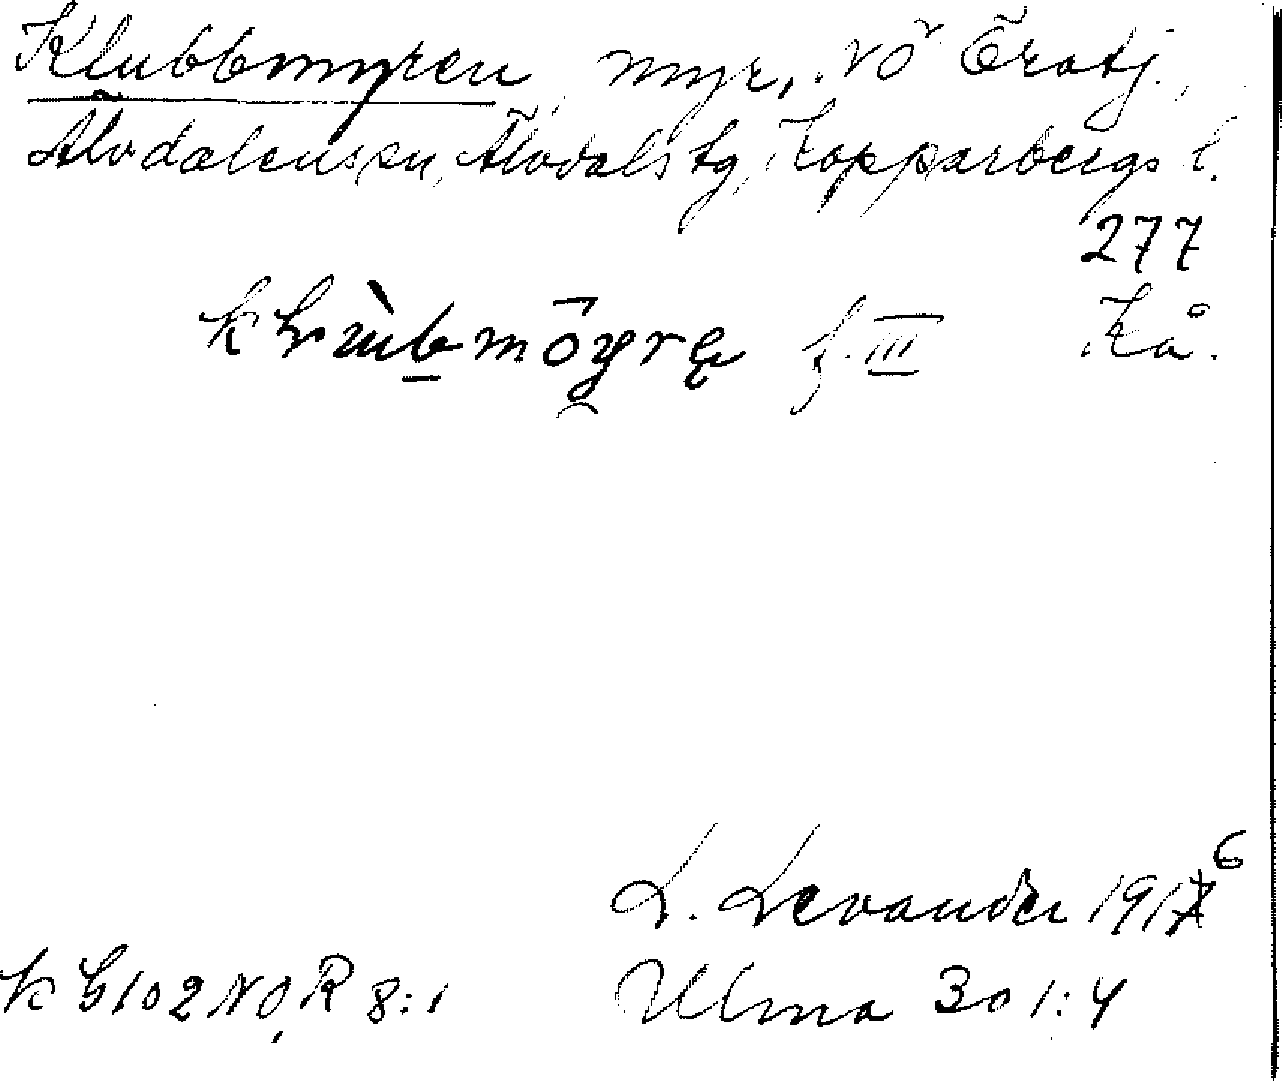 Klubbmyren, myr, NÖ Örotj.,
Älvdalens sn, Älvdals tg, Kopparbergs l.
277
f. III Kå.
L. Levander 1916
kbl 102 NO, R 8:1 Ulma 301:4